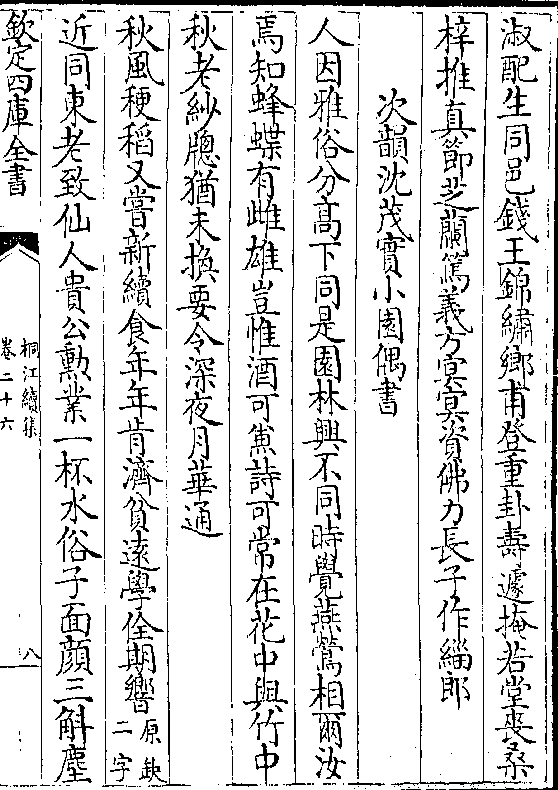 淑配生同邑錢王錦繡鄉甫登重卦壽遽掩若堂喪桑
梓推真節芝蘭篤義方冥冥資佛力長子作緇郎
次韻沈茂實小園偶書
人因雅俗分高下同是園林興不同時覺燕鶯相爾汝
焉知蜂蝶有雌雄豈惟酒可兼詩可常在花中與竹中
秋老紗牕猶未換要令深夜月華通
秋風稉稻又嘗新續食年年肯濟貧遠學佺期響原缺二字
近同東老致仙人貴公勲業一杯水俗子面顔三斛塵
欽定四庫全書
桐江續集
卷二十六
八